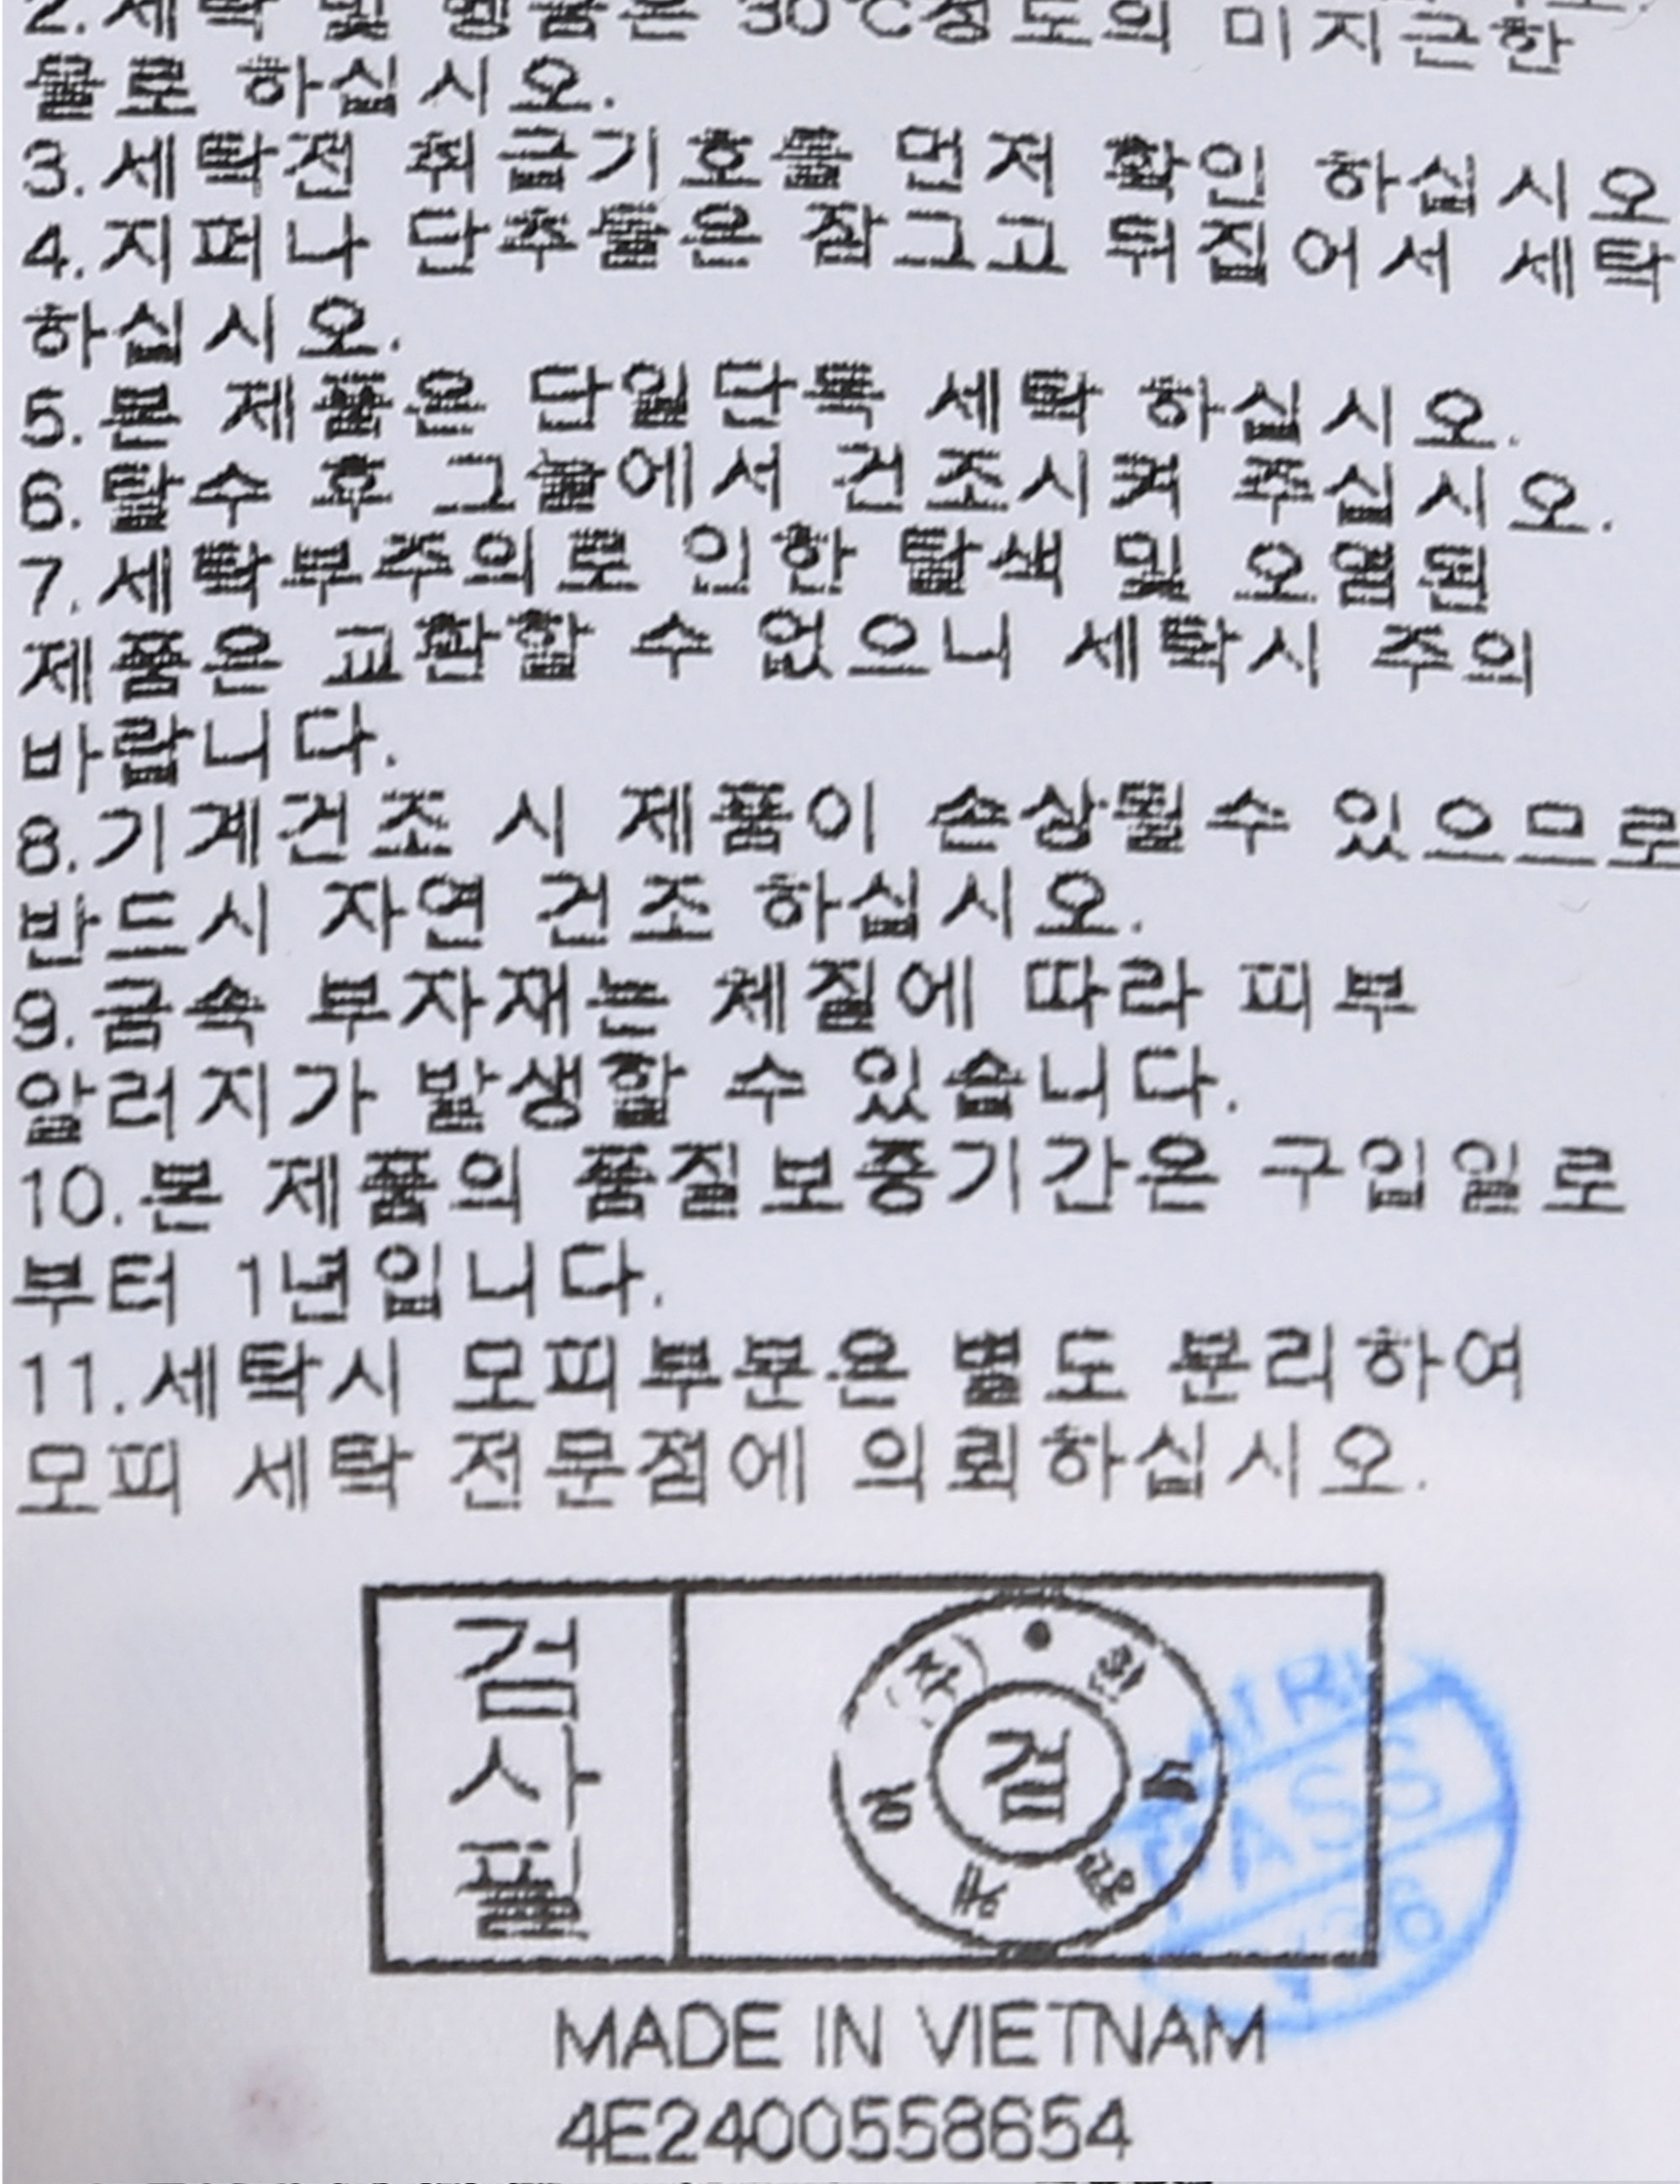 2.세탁 및 헹굼은 30℃정도의 미지근한
물로 하십시오.
3.세탁전 취급기호를 먼저 확인 하십시오
4.지퍼나 단추들은 잠그고 뒤집어서 세탁
하십시오.
5.본 제품은 단일단독 세탁 하십시오.
6.탈수 후 그늘에서 건조시켜 주십시오.
7.세탁부주의로 인한 탈색 및 오염된
제품은 교환할 수 없으니 세탁시 주의
바랍니다.
8.기계건조 시 제품이 손상될수 있으므로
반드시 자연 건조 하십시오.
9.금속 부자재는 체질에 따라 피부
알러지가 발생할 수 있습니다.
10.본 제품의 품질보증기간은 구입일로
부터 1년입니다.
11.세탁시 모피부분은 별도 분리하여
모피 세탁 전문점에 의뢰하십시오.
검사필
검
PASS
MADE IN VIETNAM
4E2400558654